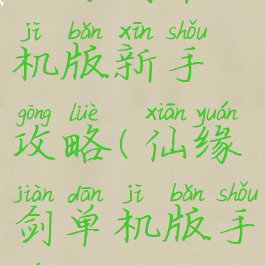 jī bǎn xīn shǒu
机版新手
gōng lüè xiān yuán
攻略(仙缘
jiàn dān jī bǎn shǒu
剑单机版手